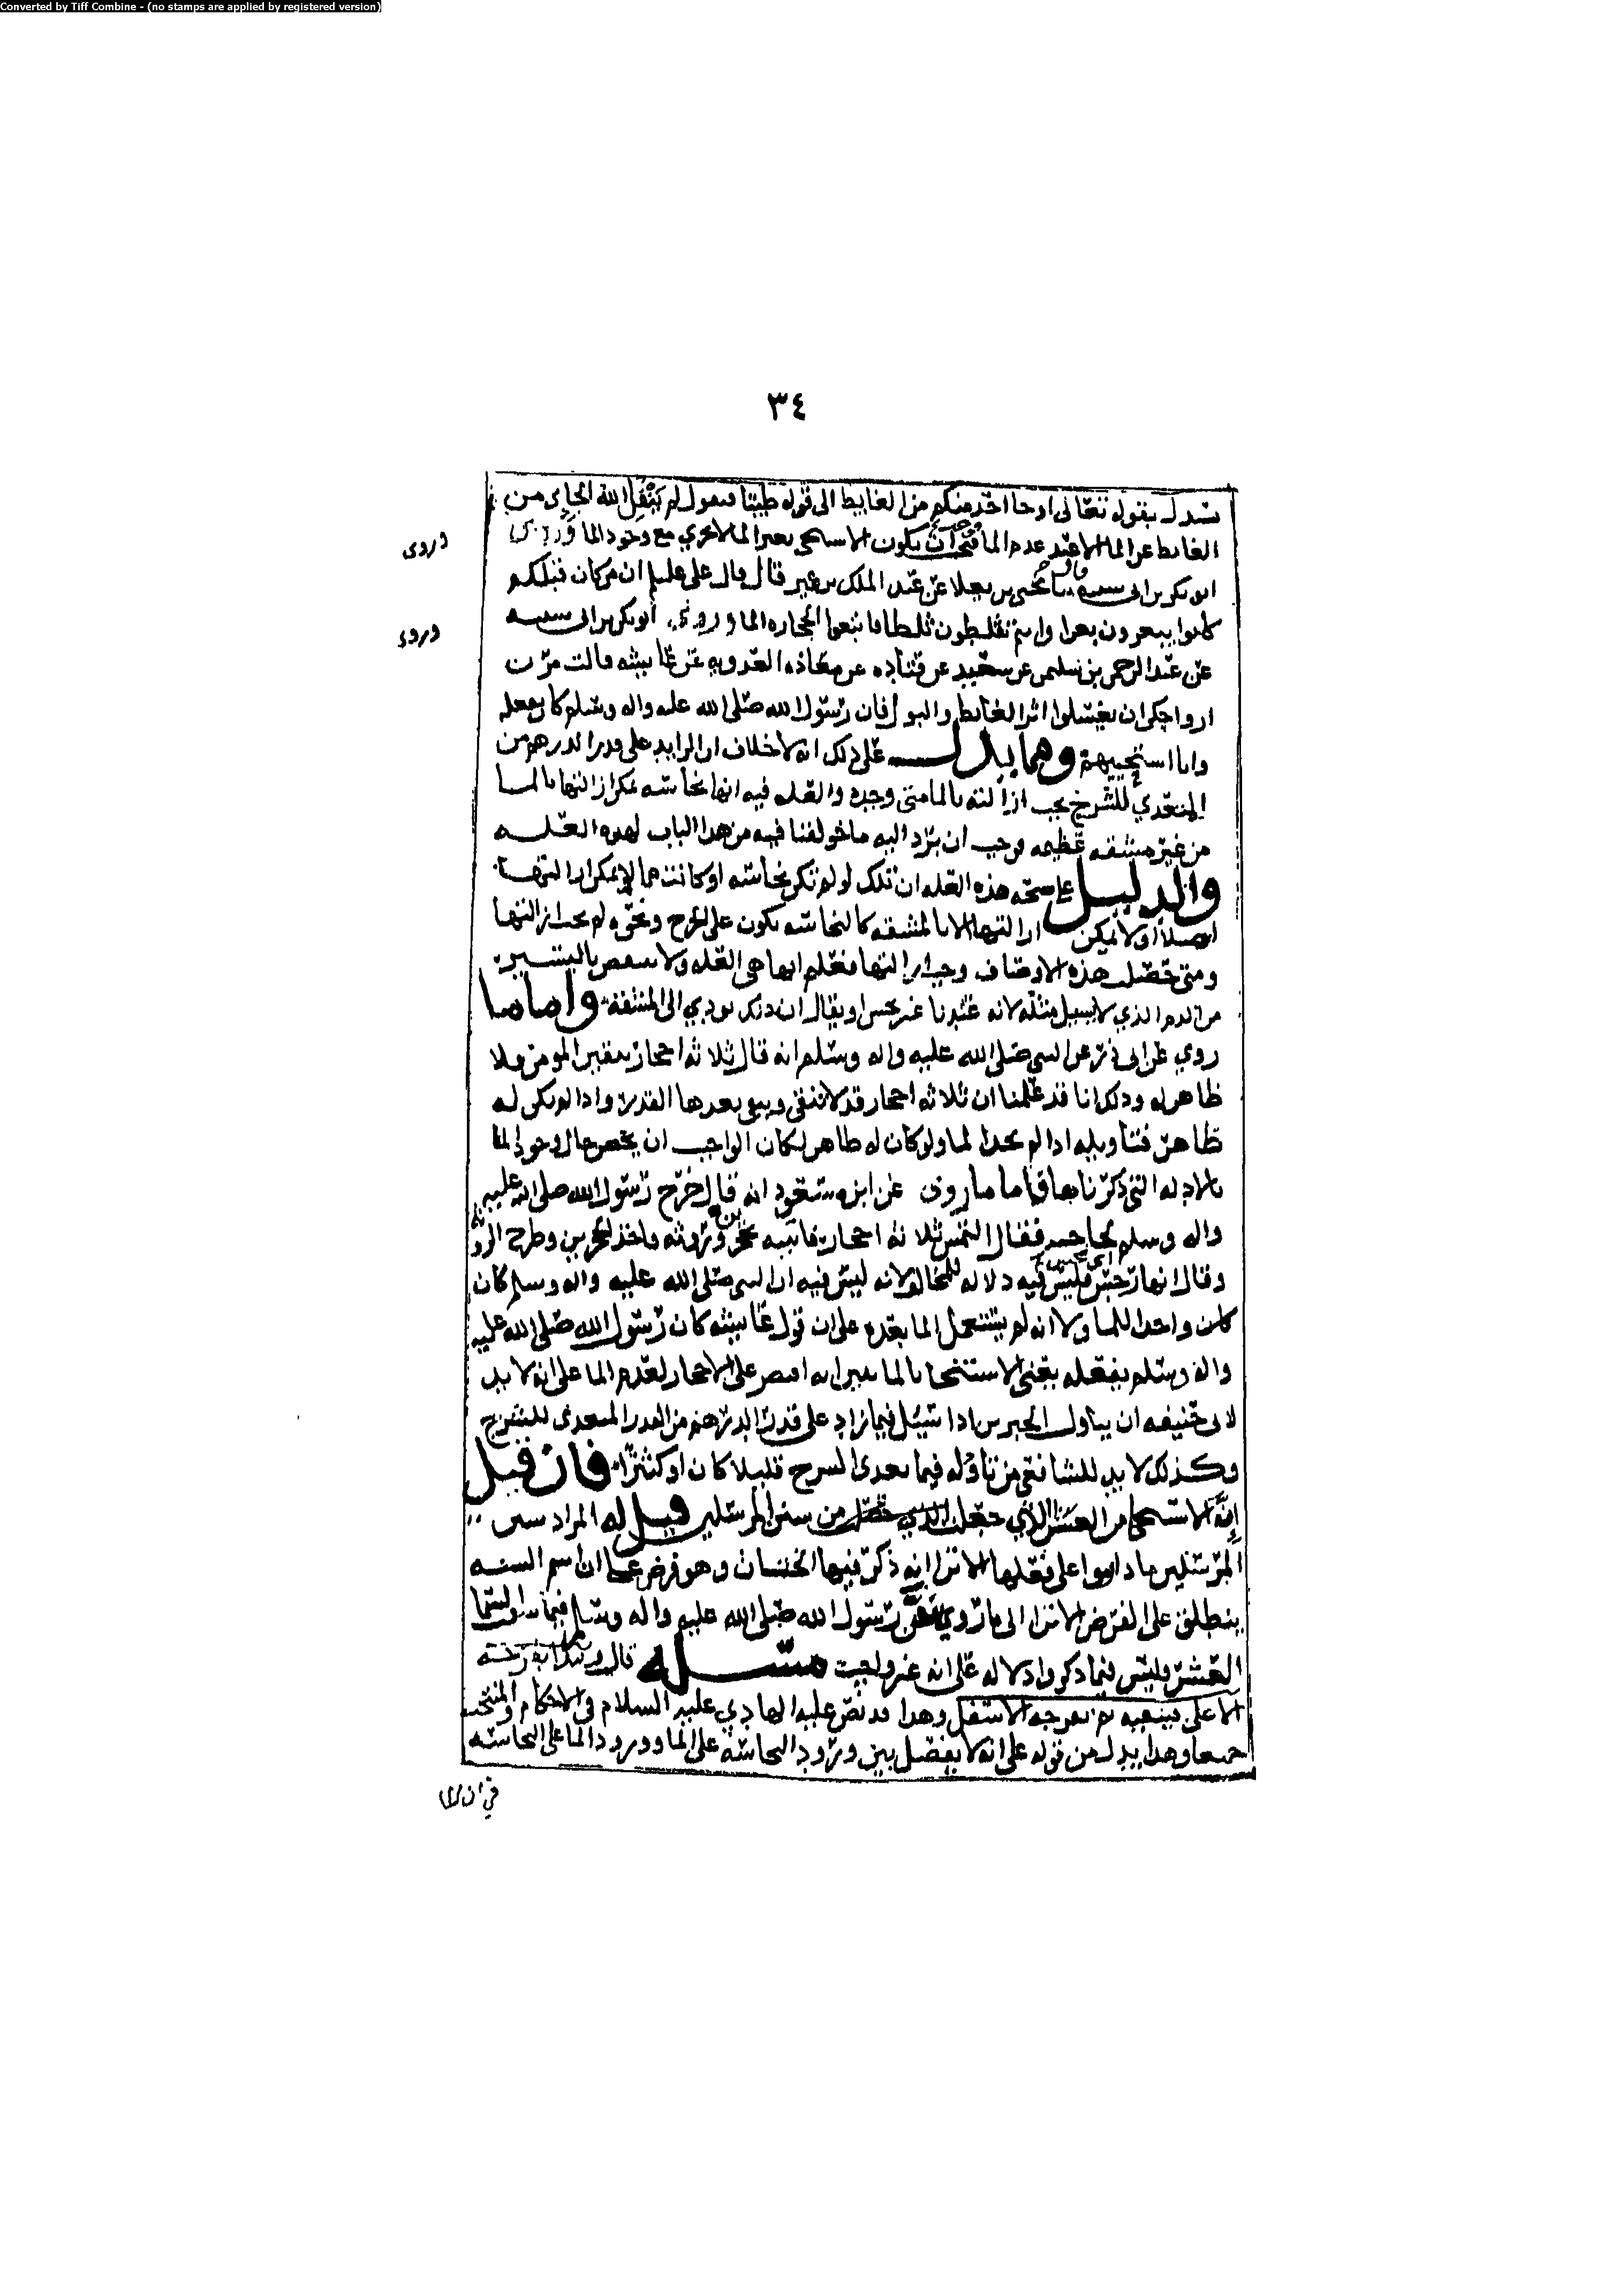 Converted by Tiff Combine - (no stamps are applied by registered version)
٣٤
يستدل بقوله تعالى او جا احد منكم من الغايط الى قوله طيبا فنقول لم ينقل الله الجاي من
الغايط عن الما الا عند عدم الما فوجب ان يكون الاستنجى بغير الما لا يجزي مع وجود الما وروى
وروى
ابو بكر بن ابى شيبه يحيى بن يعلا عن عبد الملك بن عمير قال قال على عليلم ان من كان قبلكم
كانوا يبعرون بعرا وانتم تثلطون ثلطا فاتبعوا الحجاره الما وروى ابو بكر بن ابى شيبه
وروى
عن عبد الرحمن بن سليمن عن سعيد عن قتاده عن معاذه العدويه عن عايشه قالت مرن
ازواجكن ان يغسلوا اثر الغايط والبول فان رسول الله صلى الله عليه واله وسلم كان يفعله
وانا استحييهم ومما يدل على ذلك انه لا خلاف ان الزايد على قدر الدرهم من
المتعدي للشرج يجب ازالته بالما متى وجده والعله فيه انها نجاسه يمكن ازالتها بالما
من غير مشقه عظيمه فوجب ان يرد اليه ما خولفنا فيه من هذا الباب لهذه العله
والدليل على صحه هذه العله ان تلك لو لم تكن نجاسه او كانت مما لا يمكن ازالتها
اصلا او لا يمكن ازالتها الا بالمشقه كالنجاسه يكون على الجرح ونحوه لم يجب ازالتها
ومتى حصلت هذه الاوصاف وجب ازالتها فعلم انها هي العله ولا ينتقض باليسير
من الدم الذي لا يسيل مثله لانه عندنا غير نجس او يقال ان ذلك يودي الى المشقه واما ما
روي عن ابى ذر عن النبي صلى الله عليه واله وسلم انه قال ثلاثه احجار ينقين المومن فلا
ظاهر له وذلك انا قد علمنا ان ثلاثه احجار قد لا تنقى ويبقى بعدها القدر واذا لم يكن له
ظاهر فتاويله اذا لم يجد الما ولو كان له ظاهر لكان الواجب ان يخص حال وجود الما
بالادله التي ذكرناها فاما ما روى عن ابن مسعود انه قال خرج رسول الله صلى الله عليه
واله وسلم لحاجته فقال التمس ثلاثه احجار فاتيته بحجرين وروثه فاخذ الحجرين وطرح الروثه
وقال انها رجس اي نجس فليس فيه دلاله للمخالف لانه ليس فيه ان النبي صلى الله عليه واله وسلم كان
كان واجدا للما ولا انه لم يستعمل الما بعده على ان قول عايشه كان رسول الله صلى الله عليه
واله وسلم يفعله يعني الاستنجا بالما يبين انه اقتصر على الاحجار لعدم الما على انه لا بد
لابى حنيفه ان يتاول الخبرين اذا سئل فيما زاد على قدر الدرهم من القدر المتعدى للشرج
وكذلك لا بد للشافعى من تاوله فيما تعدى الشرج قليلا كان او كثيرا فان قيل
ان الاستنجا من العشر التي جعلت من سنن المرسلين قيل له المراد سنن
المرسلين ما داموا على فعلها الا ترا انه ذكر فيها الختان وهو فرض على ان اسم السنه
ينطلق على الفرض الا ترا الى ما روي عن رسول الله صلى الله عليه واله وسلم فيما سقت السما
العشر وليس فيما ذكروا دلاله على انه غير واجب مسئله قال
الاعلى فينقيه ثم فرجه الاسفل وهذا قد نص عليه الهادي عليه السلام فى الاحكام والمنتخب
جميعا وهذا يدل من قوله على انه لا يفصل بين ورود النجاسه على الما وورود الما على النجاسه
في ان